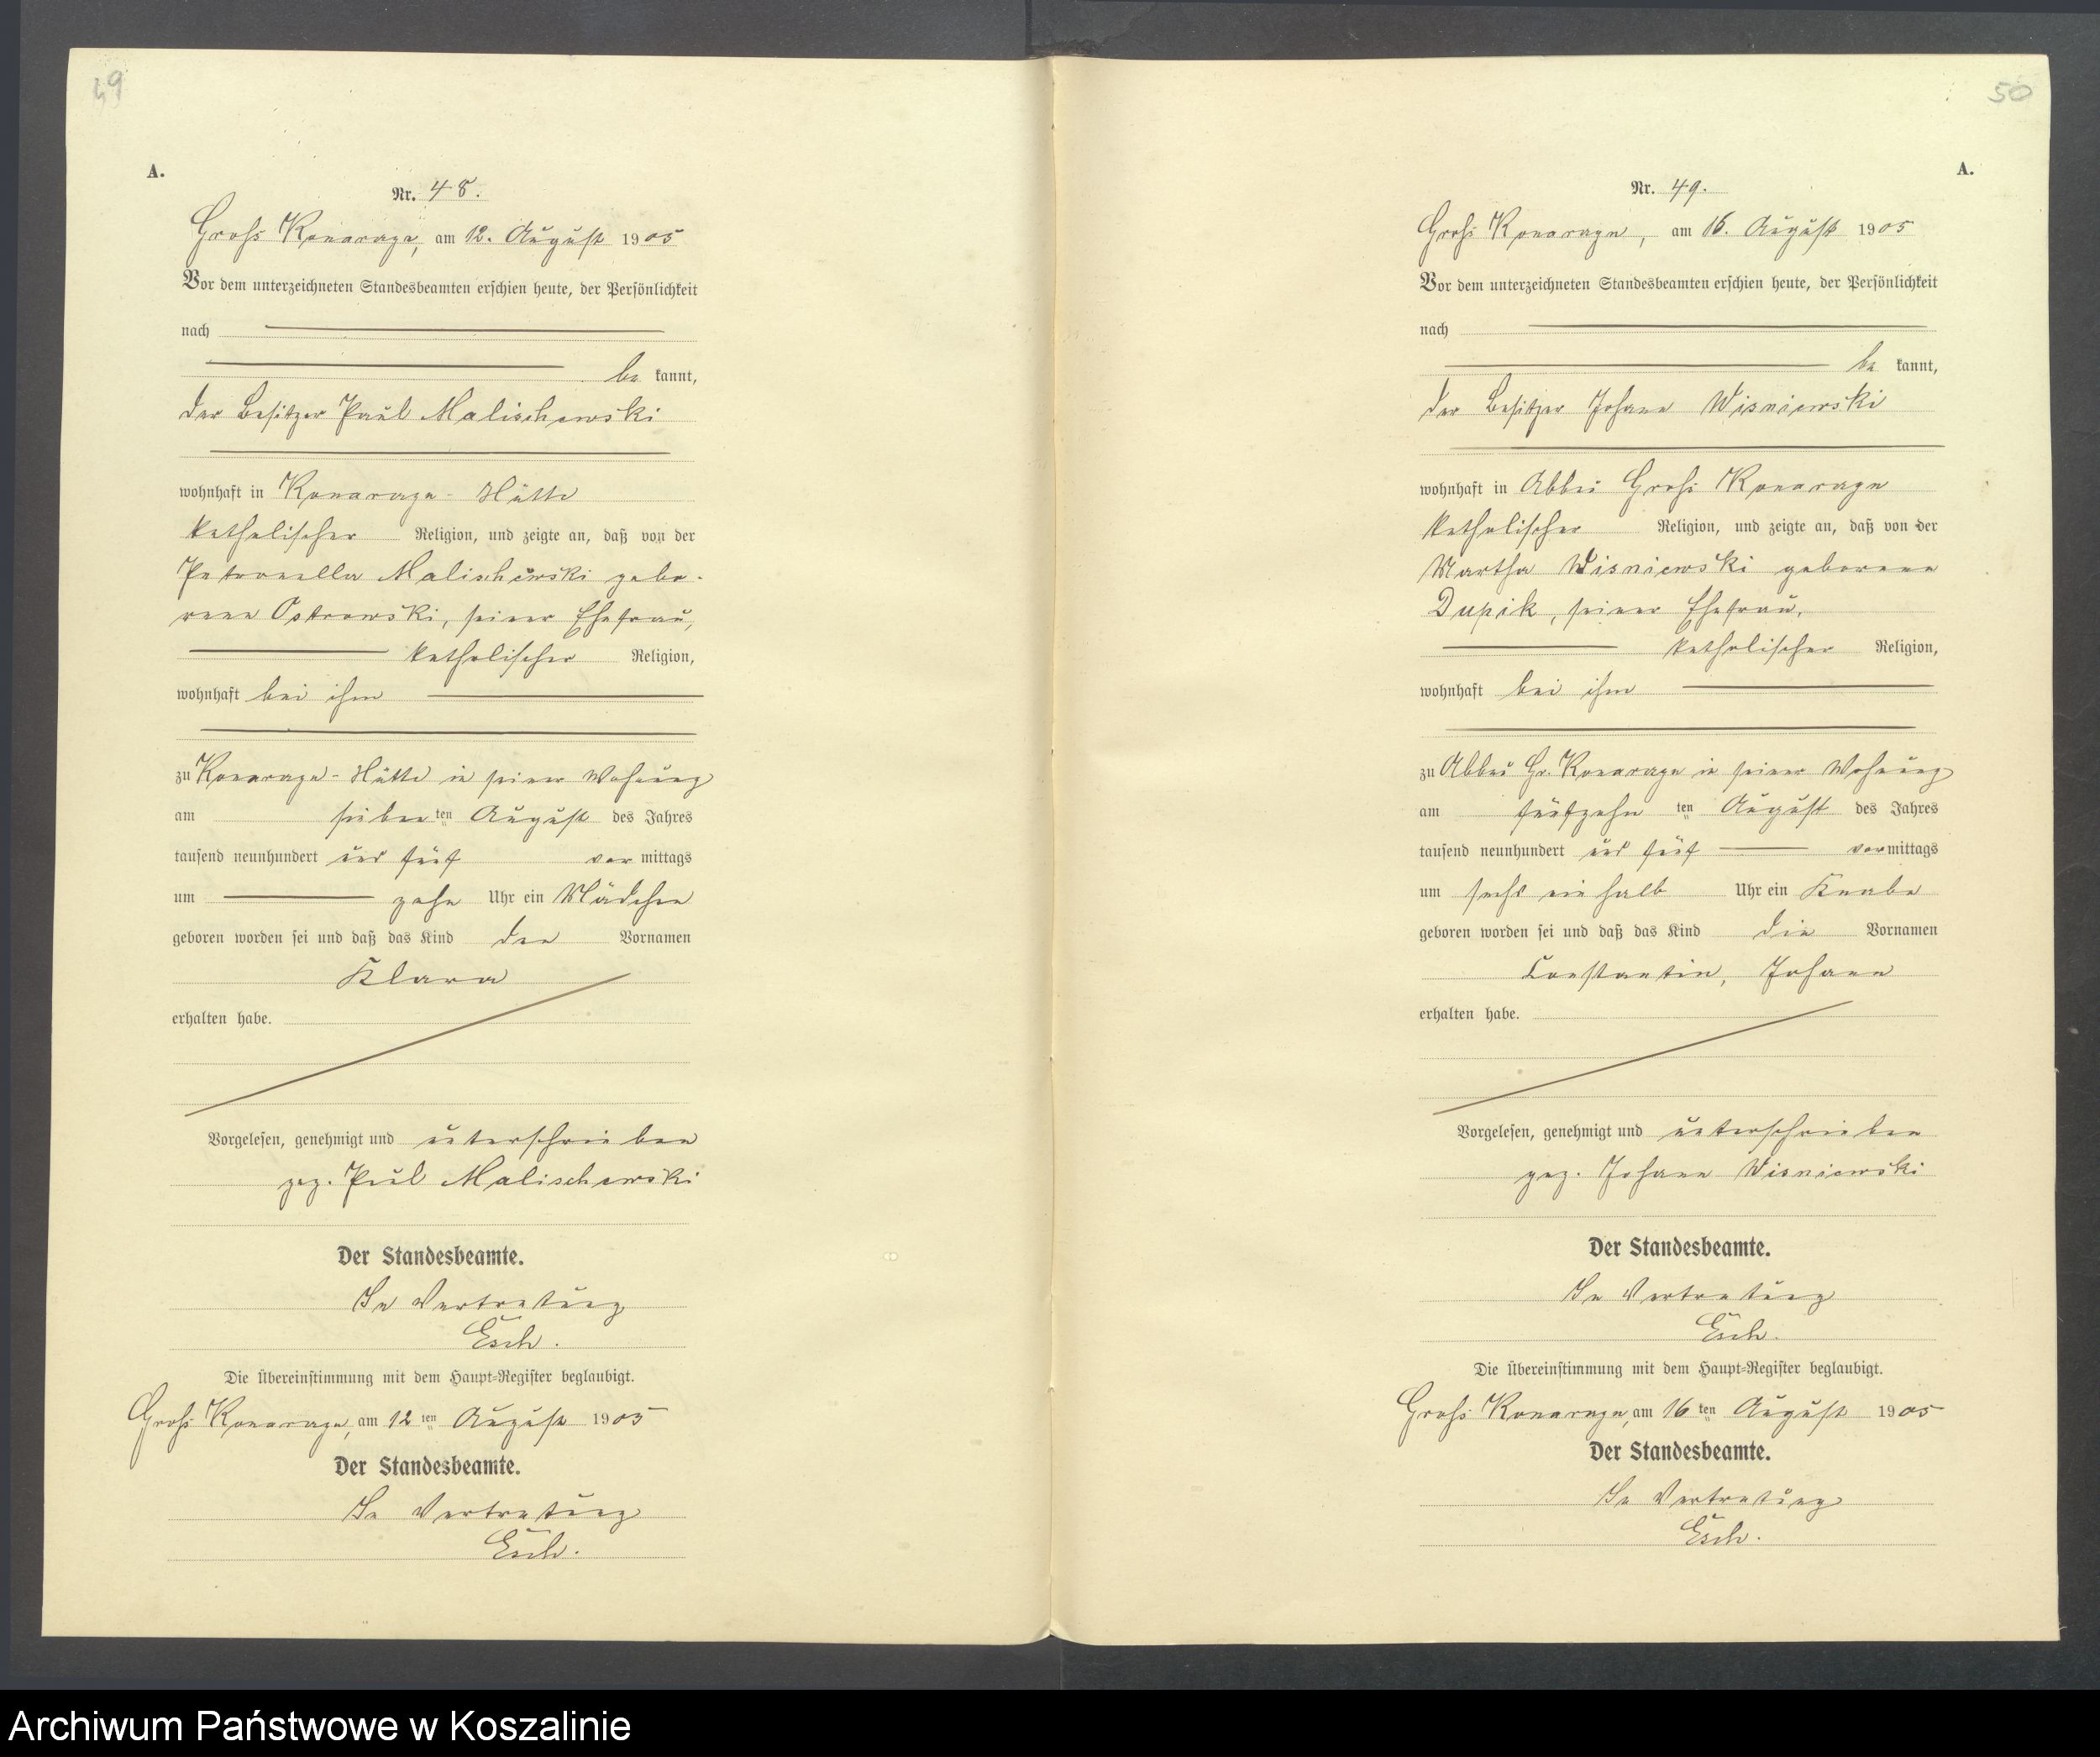 49
A.
Nr. 48.
Groß Konarczyn, am 12. August 1905
Vor dem unterzeichneten Standesbeamten erschien heute, der Persönlichkeit
nach
be kannt,
der Besitzer Paul Malischewski
wohnhaft in Konarczyn-Hütte
katholischer Religion, und zeigte an, daß von der
Petronella Malischewski gebo-
rene Ostrowski, seiner Ehefrau,
katholischer Religion,
wohnhaft bei ihm
zu Konarczyn-Hütte in seiner Wohnung
am sieben ten August des Jahres
tausend neunhundert und fünf vor mittags
um zehn Uhr ein Mädchen
geboren worden sei und daß das Kind den Vornamen
Klara
erhalten habe.
Vorgelesen, genehmigt und unterschrieben
gez. Paul Malischewski
Der Standesbeamte.
In Vertretung
Esch.
Die Übereinstimmung mit dem Haupt-Register beglaubigt.
Groß Konarczyn, am 12 ten August 1905
Der Standesbeamte.
In Vertretung
Esch.
50
A.
Nr. 49.
Groß Konarczyn, am 16. August 1905
Vor dem unterzeichneten Standesbeamten erschien heute, der Persönlichkeit
nach
be kannt,
der Besitzer Johann Wisniewski
wohnhaft in Abbau Groß Konarczyn
katholischer Religion, und zeigte an, daß von der
Martha Wisniewski geborene
Dupik, seiner Ehefrau,
katholischer Religion,
wohnhaft bei ihm
zu Abbau Gr. Konarczyn in seiner Wohnung
am fünfzehn ten August des Jahres
tausend neunhundert und fünf vormittags
um sechs ein halb Uhr ein Knabe
geboren worden sei und daß das Kind die Vornamen
Constantin, Johann
erhalten habe.
Vorgelesen, genehmigt und unterschrieben
gez. Johann Wisniewski
Der Standesbeamte.
In Vertretung
Esch.
Die Übereinstimmung mit dem Haupt-Register beglaubigt.
Groß Konarczyn, am 16 ten August 1905
Der Standesbeamte.
In Vertretung
Esch.
Archiwum Państwowe w Koszalinie